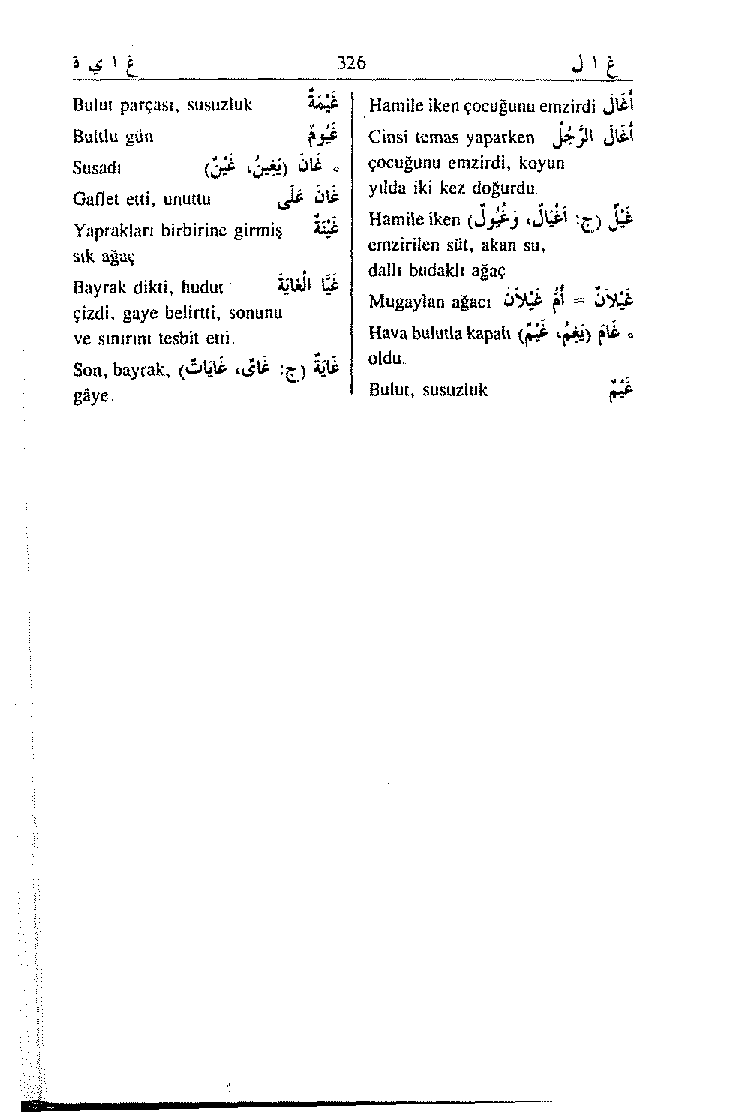 غ ا ل 326 غ ا ي ة
Hamile iken çocuğunu emzirdi أَغَالَ
Cinsi temas yaparken أَغَالَ الرَّجُلُ
çocuğunu emzirdi, koyun
yılda iki kez doğurdu.
Hamile iken (ج: أَغْيَالٌ، وَغُيُولٌ) غَيْلٌ
emzirilen süt, akan su,
dallı budaklı ağaç
Mugaylan ağacı غَيْلاَنٌ = أُمُّ غَيْلاَنَ
Hava bulutla kapalı (يَغِيمُ، غَيْمٌ) غَامَ ∘
oldu.
Bulut, susuzluk غَيْمٌ
Bulut parçası, susuzluk غَيْمَةٌ
Bulutlu gün غَيُومٌ
Susadı (يَغِينُ، غَيْنٌ) غَانَ ∘
Gaflet etti, unuttu غَانَ عَلَى
Yaprakları birbirine girmiş غَيْنَةٌ
sık ağaç
Bayrak dikti, hudut غَيَّا الْغَايَةَ
çizdi, gaye belirtti, sonunu
ve sınırını tesbit etti.
Son, bayrak, (ج: غَاىٌ، غَايَاتٌ) غَايَةٌ
gâye.